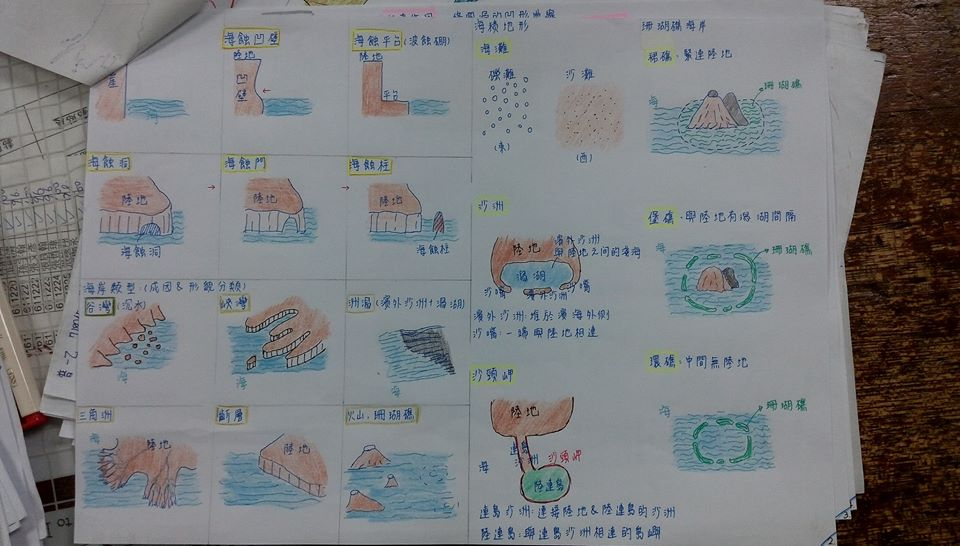 海蝕凹壁
陸地
凹壁
海蝕平台(波蝕棚)
陸地
平台
海蝕洞
陸地
海蝕洞
海蝕門
陸地
海蝕柱
陸地
海蝕柱
海岸類型:(成因&形態分類)
谷灣(沉水)
陸地
海
峽灣
海
洲潟(濱外沙洲+潟湖)
海
三角洲
海
陸地
斷層
陸地
火山、珊瑚礁
海積地形
海灘
礫灘
(東)
沙灘
(西)
沙洲
陸地
濱外沙洲
與陸地之間的淺海
潟湖
沙嘴
濱外沙洲
沙嘴
濱外沙洲:堆於濱海外側
沙嘴:一端與陸地相連
沙頸岬
陸地
海
連島沙洲
沙頸岬
陸連島
連島沙洲:連接陸地&陸連島的沙洲
陸連島:聯連島沙洲相連的島嶼
珊瑚礁海岸
裙礁、緊連陸地
海
珊瑚礁
堡礁、與陸地有潟湖間隔
海
珊瑚礁
環礁、中間無陸地
海
珊瑚礁